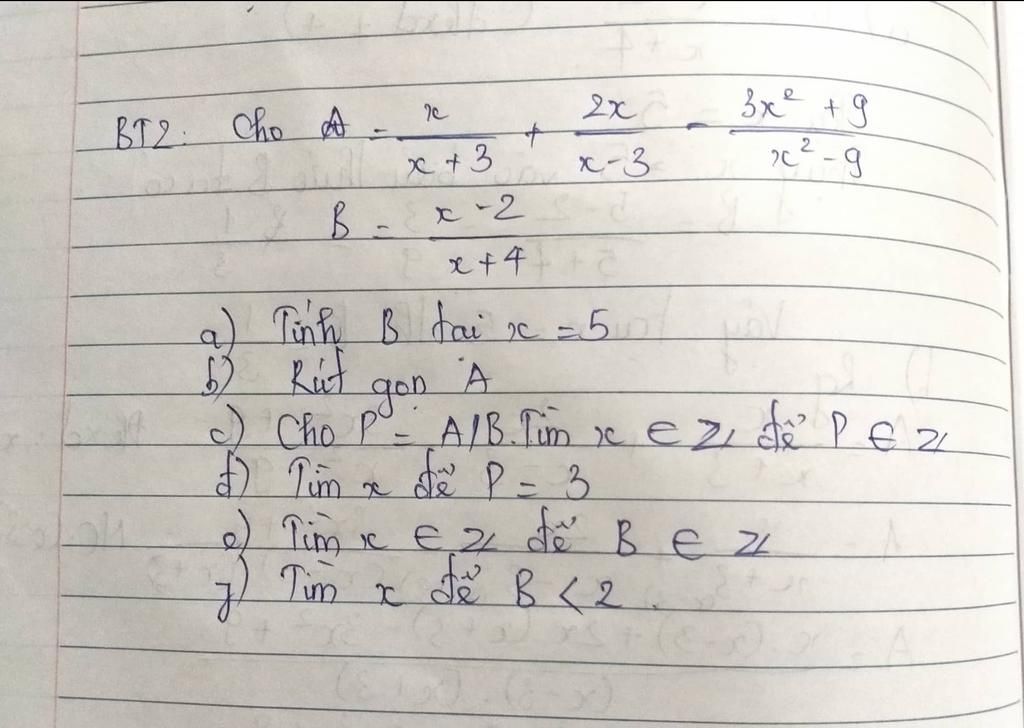 BT2: Cho A = x/(x + 3) + 2x/(x - 3) - (3x² + 9)/(x² - 9)
B = (x - 2)/(x + 4)
a) Tính B tại x = 5
b) Rút gọn A
c) Cho P = A/B. Tìm x ∈ Z để P ∈ Z
d) Tìm x để P = 3
e) Tìm x ∈ Z để B ∈ Z
f) Tìm x để B < 2.